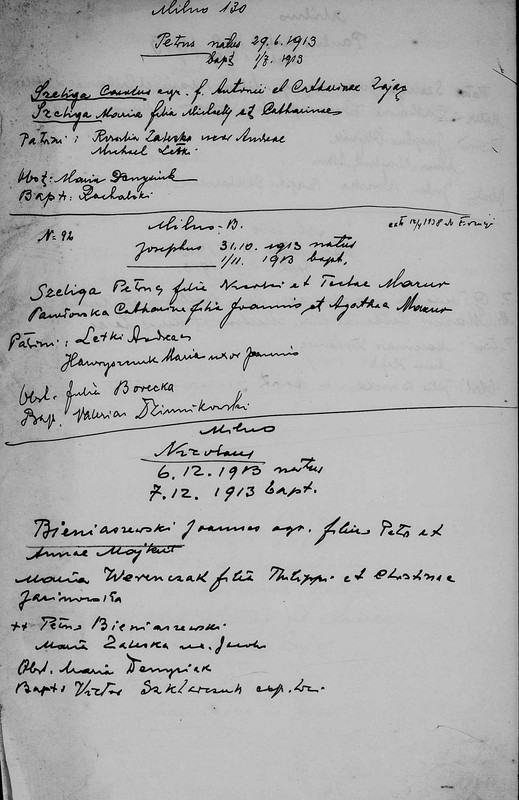 Milno 130
Petrus natus 29.6.1913
bapt 1/7. 1913
Szeliga agr. f. Antonii et Catharinae Zając
Szeliga Maria filia Michaelis et Catharinae
Patrini: Rosalia Zaleska uxor Andreae
Michael Letki
Obst: Maria Demysiuk
Bapt: Rachalski
No 92 Milno - B.
Josephus 31.10. 1913 natus
1/11. 1913 bapt.
Szeliga Petrus filius et Teclae Mazur
Pawłowska Catharina filia Joannis et Agathae Mazur
Patrini: Letki Andreas
Hawryszczuk Maria uxor Joannis
Obst. Julia Borecka
Bapt. Valerian Dziunikowski
Milno
Nicolaus
6.12.1913 natus
7.12. 1913 bapt.
Bieniaszewski Joannes agr. filius Petri et
Annae Majkut
Maria Werenczak filia Philippi et Christinae
Jasinowska
++ Petrus Bieniaszewski
Maria Zaleska ux. Jacobi
Obst. Maria Demysiak
Bapt: Victor Szklarczuk exp.